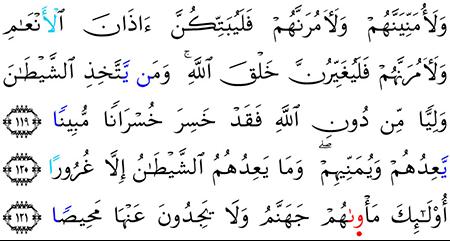 وَلَأُمَنِّيَنَّهُمْ وَلَأَمُرَنَّهُمْ فَلَيُبَتِّكُنَّ ءَاذَانَ الْأَنْعَـٰمِ
وَلَأَمُرَنَّهُمْ فَلَيُغَيِّرُنَّ خَلْقَ اللَّهِ ۚ وَمَن يَّتَّخِذِ الشَّيْطَـٰنَ
وَلِيًّا مِّن دُونِ اللَّهِ فَقَدْ خَسِرَ خُسْرَانًا مُّبِينًا ﴿١١٩﴾
يَّعِدُهُمْ وَيُمَنِّيهِمْ ۖ وَمَا يَعِدُهُمُ الشَّيْطَـٰنُ إِلَّا غُرُورًا ﴿١٢٠﴾
أُوْلَـٰٓئِكَ مَأْوَىٰهُمْ جَهَنَّمُ وَلَا يَجِدُونَ عَنْهَا مَحِيصًا ﴿١٢١﴾